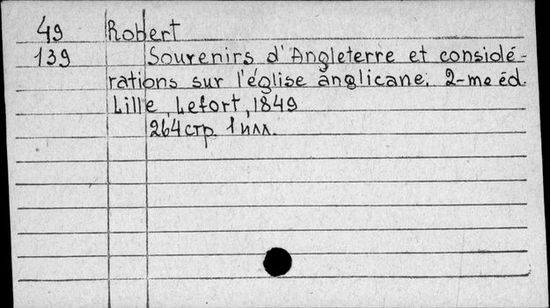 49 Robert
139 Souvenirs d'Angleterre et considé-
rations sur l'église anglicane. 2-me éd.
Lille, Lefort, 1849
264 стр. 1 илл.